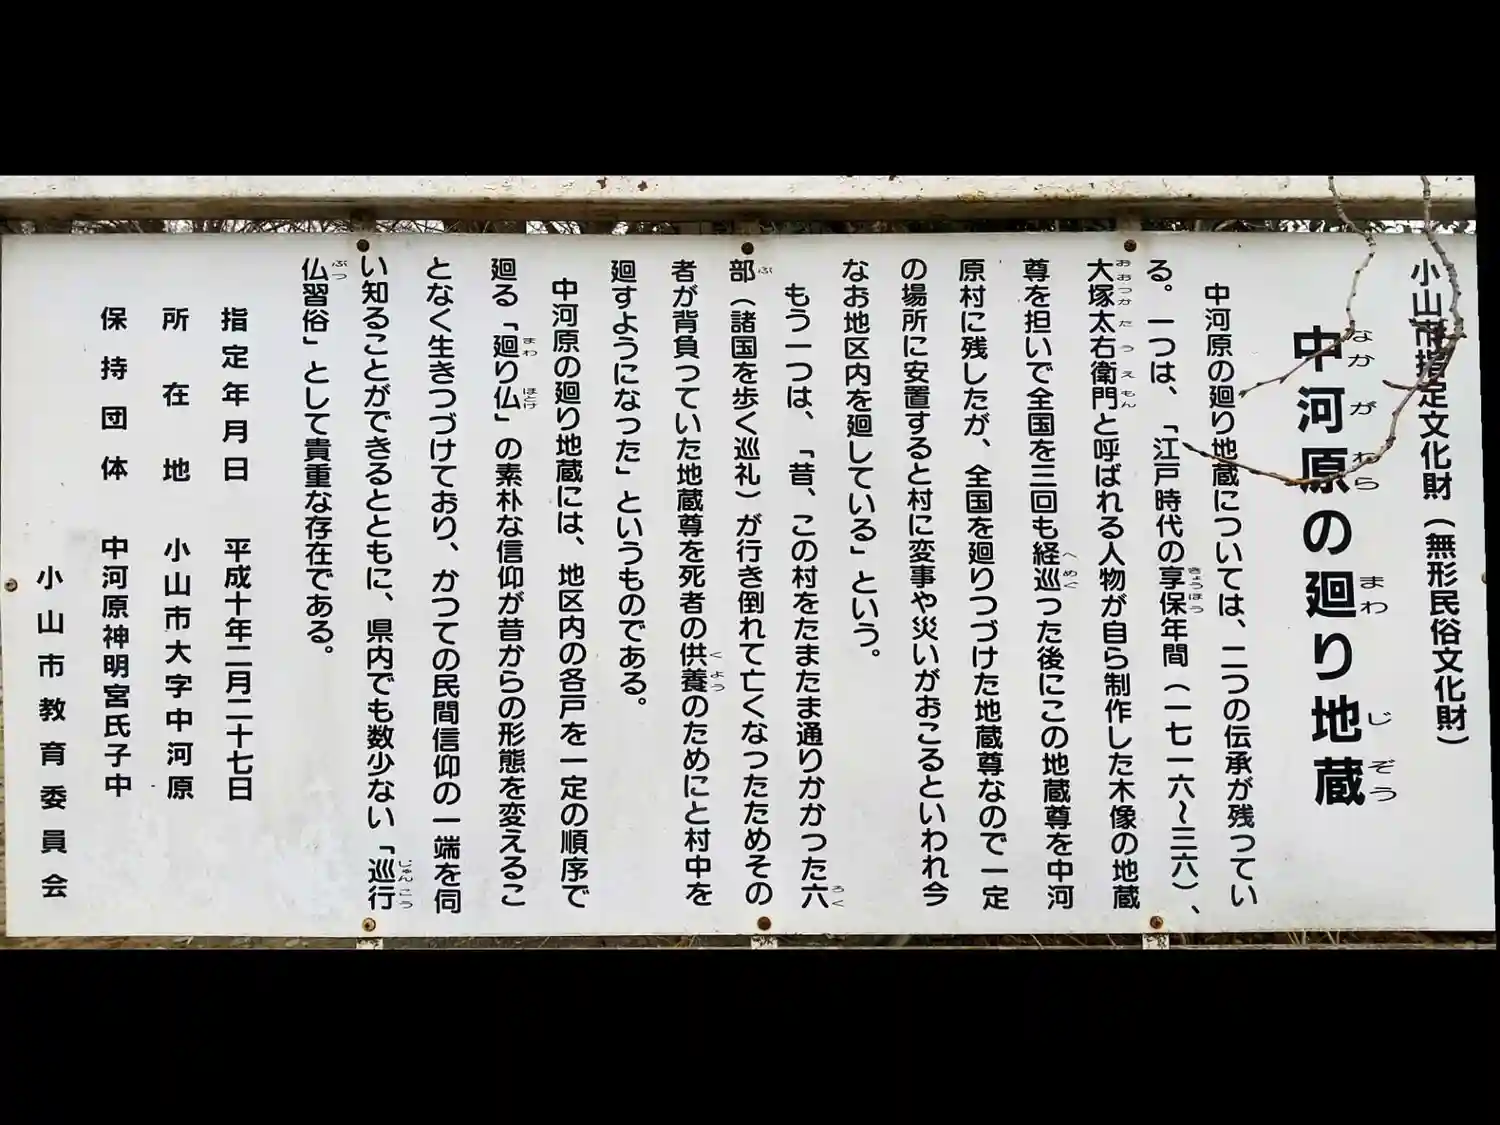 小山市指定文化財（無形民俗文化財）
中河原の廻り地蔵
なかがわら まわ じぞう
中河原の廻り地蔵については、二つの伝承が残ってい
る。一つは、「江戸時代の享保年間（一七一六〜三六）、
きょうほう
大塚太右衛門と呼ばれる人物が自ら制作した木像の地蔵
おおつか たうえもん
尊を担いで全国を三回も経巡った後にこの地蔵尊を中河
へめぐ
原村に残したが、全国を廻りつづけた地蔵尊なので一定
の場所に安置すると村に変事や災いがおこるといわれ今
なお地区内を廻している」という。
もう一つは、「昔、この村をたまたま通りかかった六
ろく
部（諸国を歩く巡礼）が行き倒れて亡くなったためその
ぶ
者が背負っていた地蔵尊を死者の供養のためにと村中を
くよう
廻すようになった」というものである。
中河原の廻り地蔵には、地区内の各戸を一定の順序で
廻る「廻り仏」の素朴な信仰が昔からの形態を変えるこ
まわ ほとけ
となく生きつづけており、かつての民間信仰の一端を伺
い知ることができるとともに、県内でも数少ない「巡行
じゅんこう
仏習俗」として貴重な存在である。
ぶつ
指定年月日 平成十年二月二十七日
所在地 小山市大字中河原
保持団体 中河原神明宮氏子中
小山市教育委員会